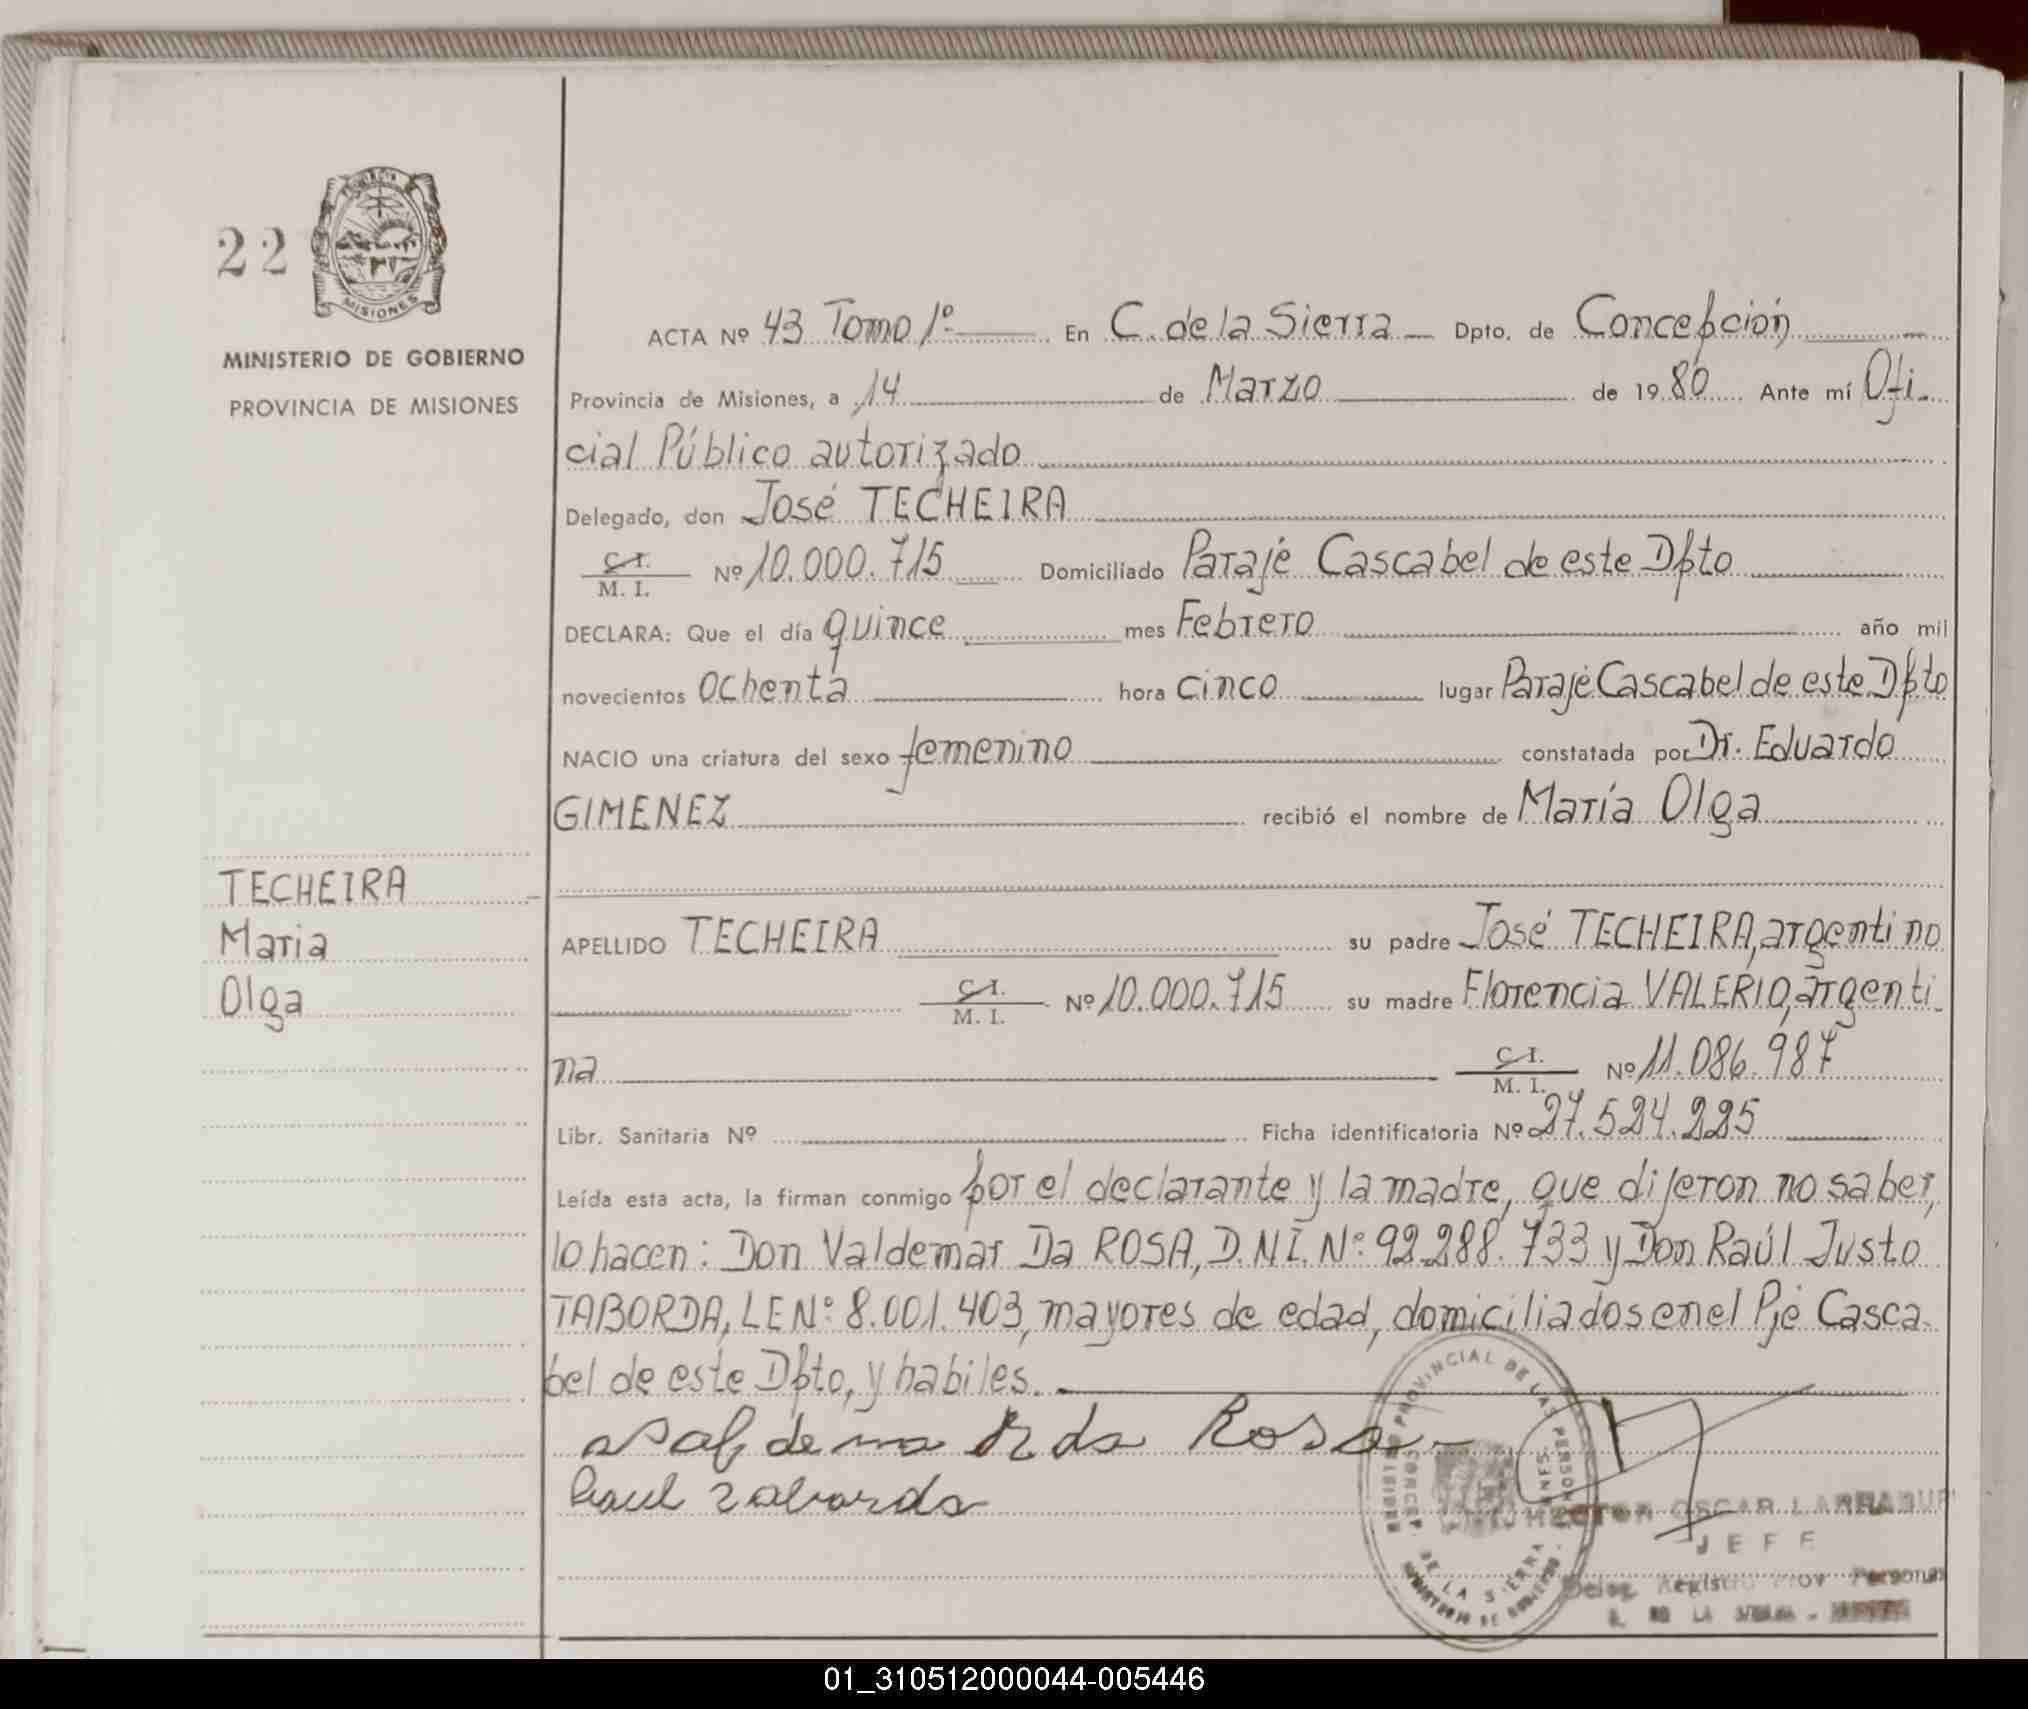 22
PROVINCIA
MISIONES
MINISTERIO DE GOBIERNO
PROVINCIA DE MISIONES
ACTA Nº 43 Tomo 1º En C. de la Sierra Dpto. de Concepción
Provincia de Misiones, a 14 de Marzo de 1980 Ante mí Ofi-
cial Público autorizado
Delegado, don José TECHEIRA
C.I. / M. I. Nº 10.000.715 Domiciliado Paraje Cascabel de este Dpto
DECLARA: Que el día quince mes Febrero año mil
novecientos ochenta hora cinco lugar Paraje Cascabel de este Dpto
NACIO una criatura del sexo femenino constatada por Dr. Eduardo
GIMENEZ recibió el nombre de María Olga
TECHEIRA
Maria
Olga
APELLIDO TECHEIRA su padre José TECHEIRA, argentino
C.I. / M. I. Nº 10.000.715 su madre Florencia VALERIO, argenti-
na C.I. / M. I. Nº 11.086.987
Libr. Sanitaria Nº Ficha identificatoria Nº 27.524.225
Leída esta acta, la firman conmigo por el declarante y la madre, que dijeron no saber,
lo hacen: Don Valdemar Da ROSA, D.N.I. Nº 92.288.733 y Don Raúl Justo
TABORDA, LE Nº 8.001.403, mayores de edad, domiciliados en el Pjé Casca-
bel de este Dpto, y habiles.
da Rosa
Raul Taborda
REGISTRO PROVINCIAL DE LAS PERSONAS
CONCEP. DE LA SIERRA MISIONES
MINISTERIO DE GOBIERNO
HECTOR OSCAR LARRABURU
JEFE
Deleg. Registro Prov Personas
DE LA SIERRA - MISIONES
01_310512000044-005446